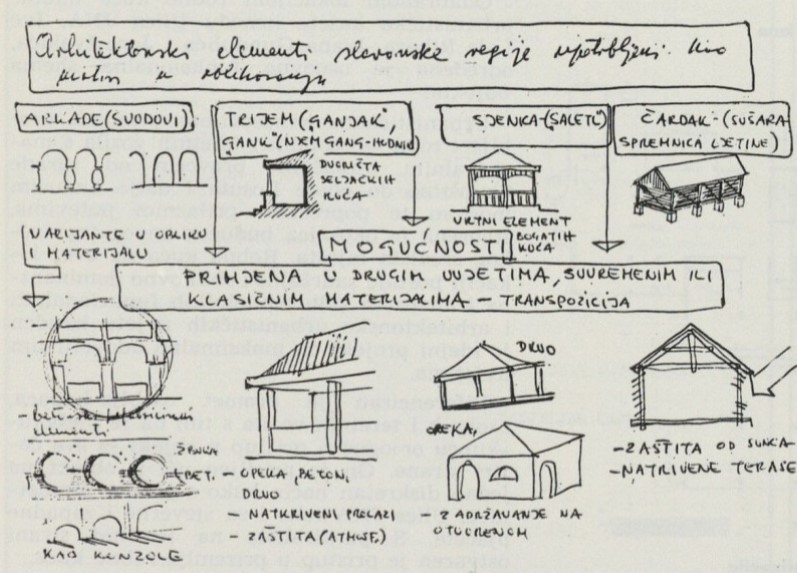 Arhitektonski elementi slavonske regije upotrebljeni kao
motiv u oblikovanju
ARKADE (SVODOVI)
TRIJEM ("GANJAK"
GANK" (NJEM GANG-HODNIK)
SJENKA-("SALETL")
ČARDAK-(SUŠARA-
SPREMNICA LJETINE)
DVORIŠTA
SELJAČKIH
KUĆA
VRTNI ELEMENT
BOGATIH
KUĆA
VARIJANTE OBLIKU
I MATERIJALU
MOGUĆNOSTI
PRIMJENA U DRUGIM UVJETIMA, SUVREMENIM ILI
KLASIČNIM MATERIJALIMA – TRANSPOZICIJA
DRVO
- betonski
element
BET.
- OPEKA, BETON,
DRVO
- NATKRIVENI PROLAZI
- ZAŠTITA (ATMOSF.)
OPEKA,
- ZADRŽAVANJE NA
OTVORENOM
- ZAŠTITA OD SUNCA
- NATKRIVENE TERASE
KAO KONZOLE